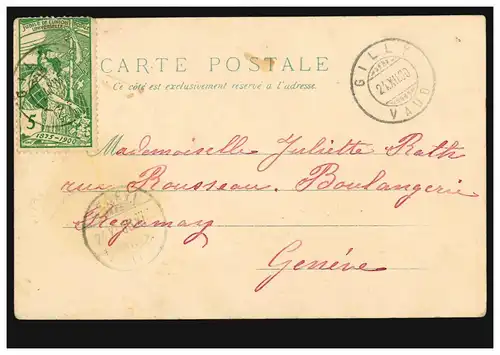 JUBILÉ DE L'UNION POSTALE UNIVERSELLE
5
1875-1900
CARTE POSTALE
Ce côté est exclusivement réservé à l'adresse.
GILLY
24.XII.00
VAUD
Mademoiselle Juliette Rath
rue Rousseau. Boulangerie
Regamay
Genève